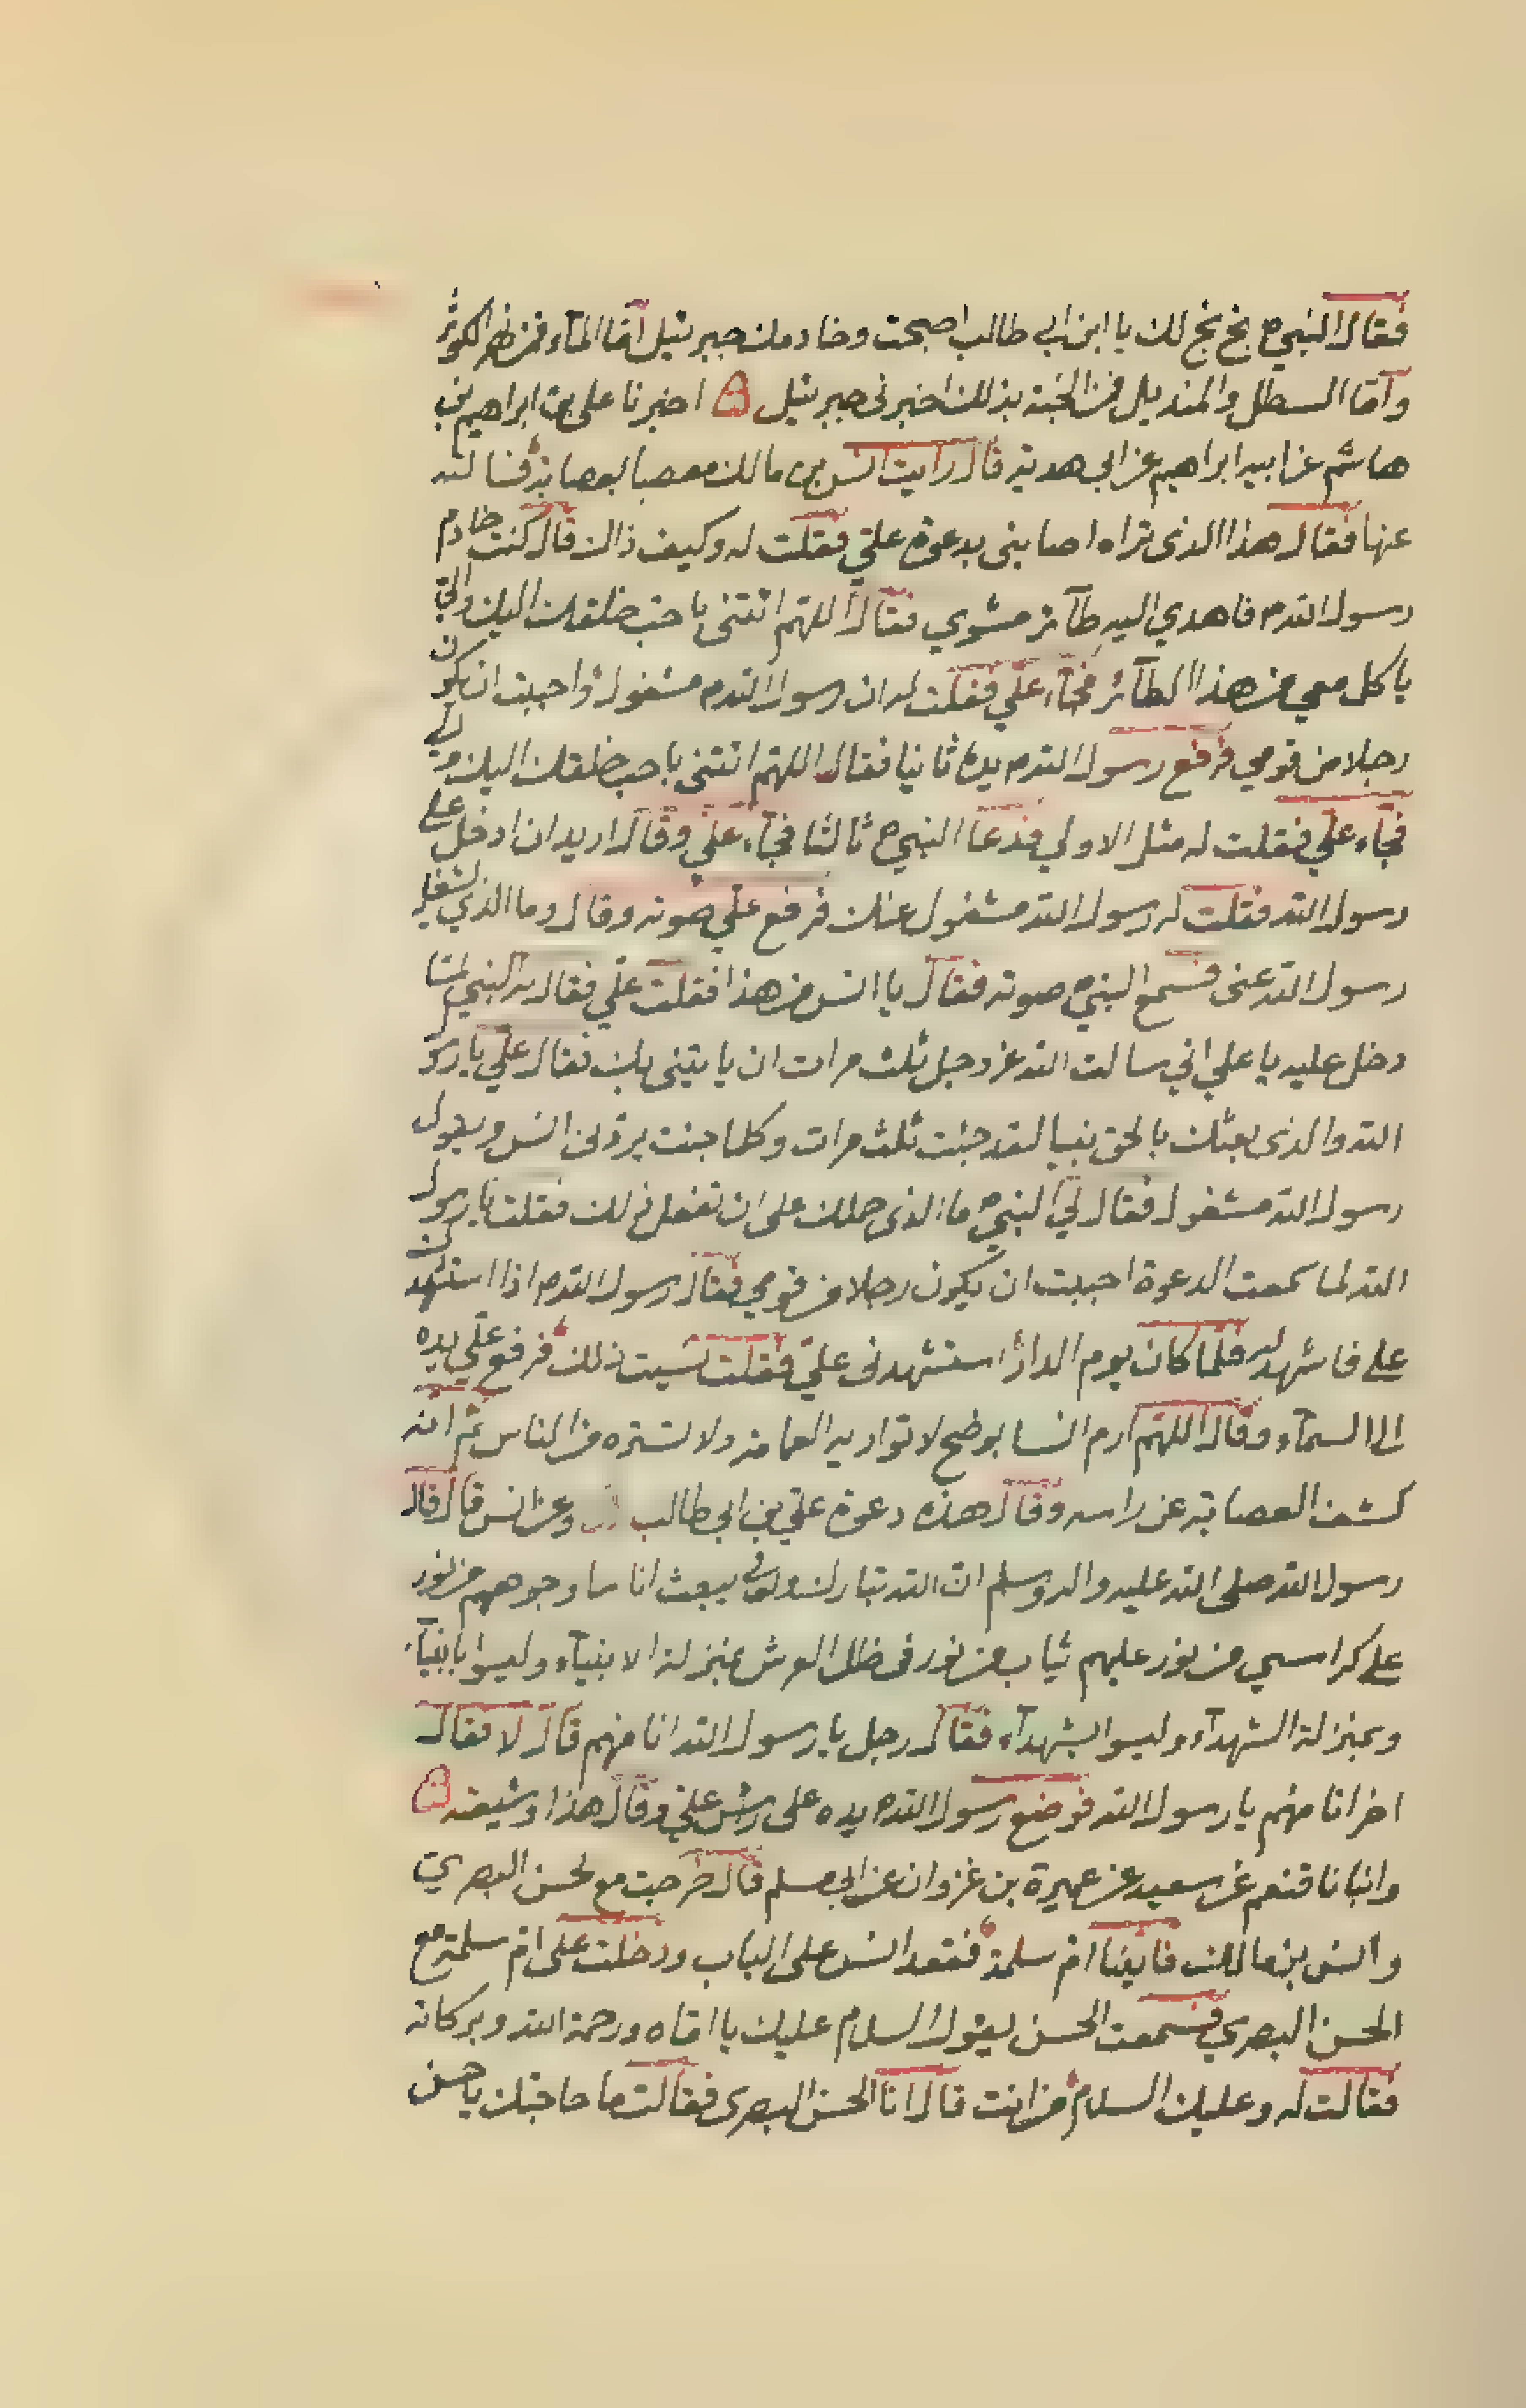 فقال النبي ص بخ بخ لك يا ابن ابي طالب اصبحت وخادمك جبرئيل اما المآء فمن نهر الكوثر
وامّا السطل والمنديل فمن الجنة بذلك اخبرنى جبرئيل اخبرنا على بن ابراهيم بن
هاشم عن ابيه ابراهيم عن ابى هدبة قال رايت انس بن مالك معصبا بعصابة فسالته
عنها فقال هذا الذى تراه اصابنى بدعوة علي فقلت له وكيف ذالك قال كنت خادم
رسول الله م فاهدي اليه طآئر مشوي فقال اللهم ائتنى باحب خلقك اليك والي
ياكل معي من هذا الطآئر فجآء علي فقلت له ان رسول الله م مشغول واحببت ان يكون
رجلا من قومي فرفع رسول الله م يده ثانيا فقال اللهم ائتنى باحب خلقك اليك و لي
فجآء علي فقلت له مثل الاولي فدعا النبي ص ثالثا فجآء علي وقال اريد ان ادخل علے
رسول الله فقلت له رسول الله مشغول عنك فرفع علي صوته وقال وما الذي يشغل
رسول الله عنى فسمع النبي ص صوته فقال يا انس من هذا فقلت علي فقال له النبي لمّا
دخل عليه يا علي اني سالت الله عز وجل ثلث مرات ان ياتينى بك فقال علي يا رسو
الله والذى بعثك بالحق نبيا لقد جئت ثلث مرات وكلما جئت يردنى انس ويقول
رسول الله مشغول فقال لي النبي ص ما الذى حملك على ان تفعل ذلك فقلت يا رسول
الله لما سمعت الدعوة احببت ان يكون رجلا من قومي فقال رسول الله م اذا استشهدك
علے فاشهد له فلما كان يوم الدار استشهدنى علي فقلت نسيت ذلك فرفع علي يده
الى السمآء وقال اللهم ارم انسا بوضح لا تواريه العمامة ولا تستره من الناس ثم انه
كشف العصابة عن راسه وقال هذه دعوة علي بن ابى طالب وعن انس قال قال
رسول الله صلى الله عليه واله وسلم ان الله تبارك وتعالى يبعث اناسا وجوههم من نور
علے كراسي من نور عليهم ثياب من نور فى ظل العرش بمنزلة الانبيآء وليسوا بانبيآء
وبمنزلة الشهدآء وليسوا بشهدآء فقال رجل يا رسول الله انا منهم قال لا فقال
اخر انا منهم يا رسول الله فوضع رسول الله م يده على راس علي وقال هذا وشيعته
وانبانا قنعم عن سعيد عن عميرة بن غزوان عن ابى مسلم قال خرجت مع الحسن البصري
وانس بن مالك فاتينا ام سلمة فقعد انس على الباب ودخلت على ام سلمة مع
الحسن البصري فسمعت الحسن يقول السلام عليك يا اماه ورحمة الله وبركاته
فقالت له وعليك السلام من انت قال انا الحسن البصرى فقالت ما حاجتك يا حسن